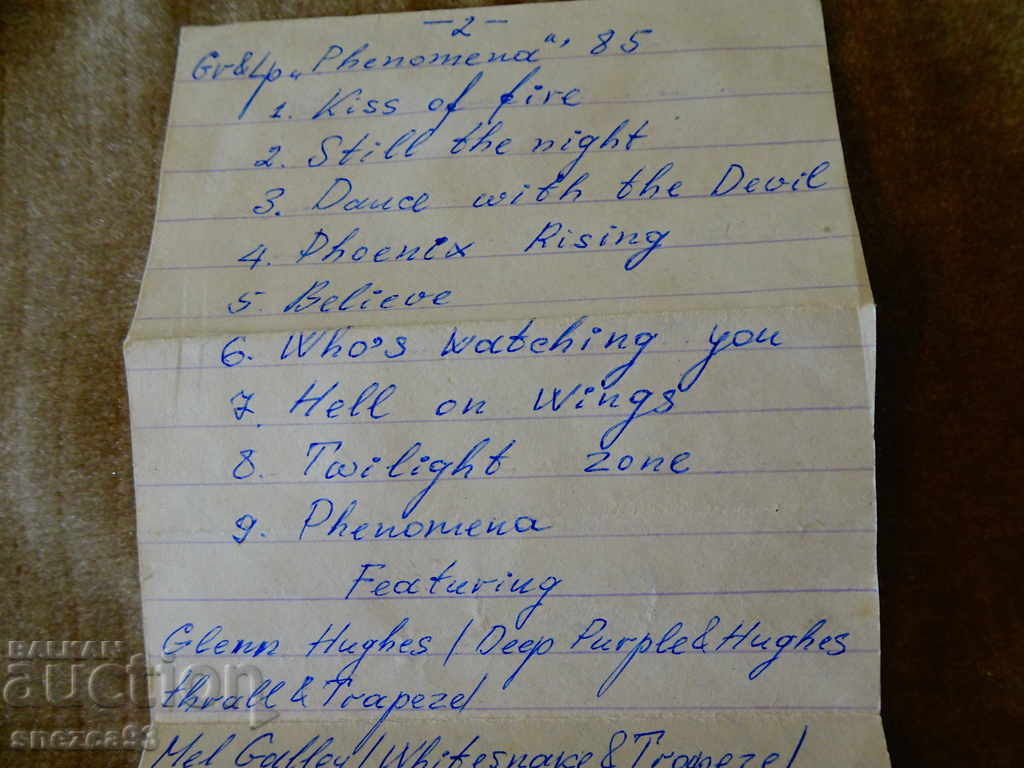 -2-
Gr&Lp „Phenomena“, 85
1. Kiss of fire
2. Still the night
3. Dance with the Devil
4. Phoenix Rising
5. Believe
6. Who's watching you
7. Hell on Wings
8. Twilight zone
9. Phenomena
Featuring
Glenn Hughes / Deep Purple & Hughes
thrall & Trapeze /
Mel Galley / Whitesnake & Trapeze /
BALKAN
auction
snezca93